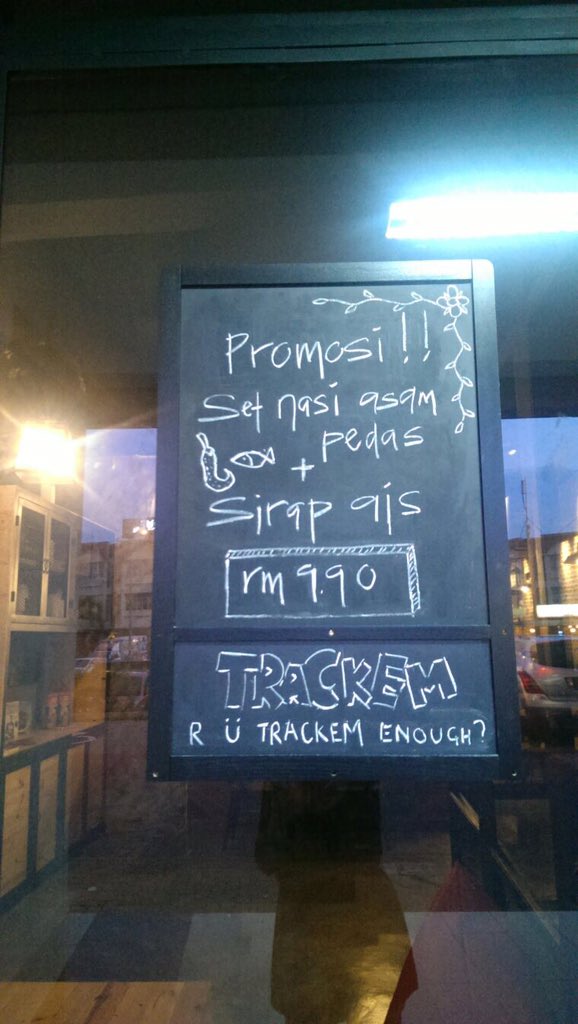 Promosi!!
Set nasi asam
pedas
+
Sirap ais
rm 9.90
TRACKEM
R Ü TRACKEM ENOUGH?